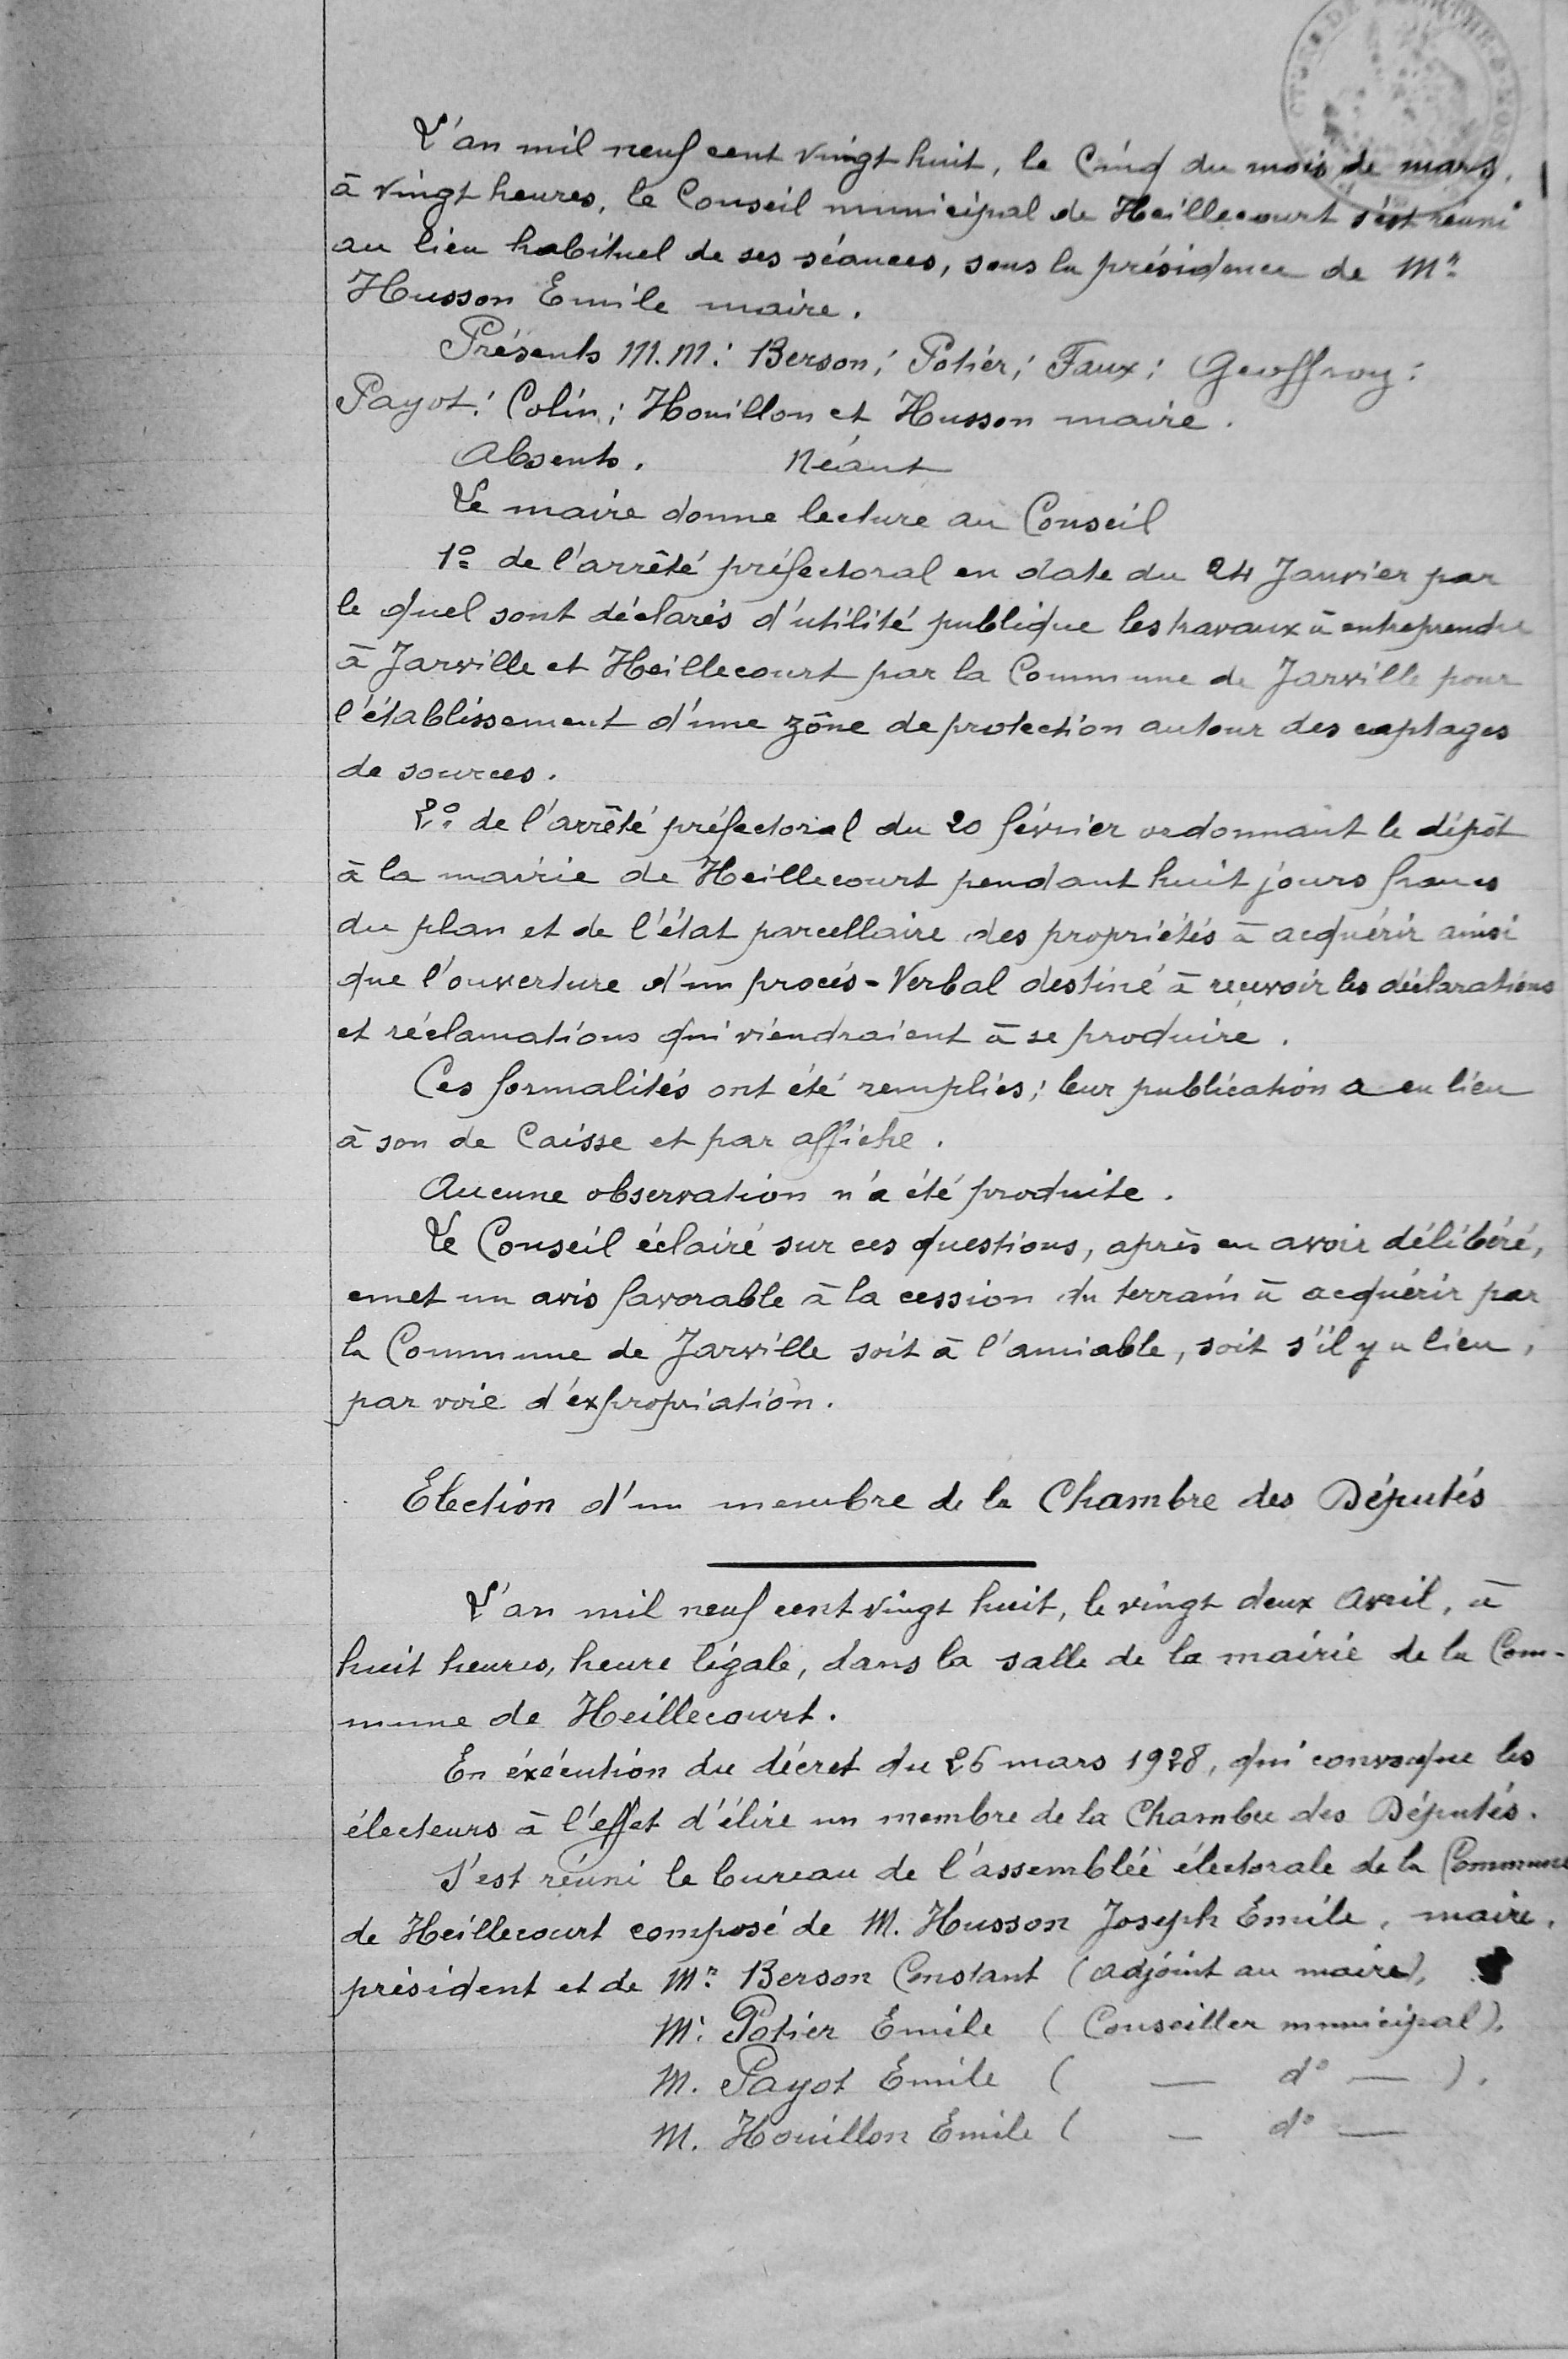 L'an mil neuf cent vingt huit, le Cinq du mois de mars,
à vingt heures, le Conseil municipal de Heillecourt s'est réuni
au lieu habituel de ses séances, sous la présidence de Mr
Husson Emile maire.
Présents M.M: Berson; Potier; Faux; Geoffroy;
Payot; Colin; Houillon et Husson maire.
Absents. Néant
Le maire donne lecture au Conseil
1º de l'arrêté préfectoral en date du 24 Janvier par
le quel sont déclarés d'utilité publique les travaux à entreprendre
à Jarville et Heillecourt par la Commune de Jarville pour
l'établissement d'une zône de protection autour des captages
de sources.
2º de l'arrêté préfectoral du 20 février ordonnant le dépôt
à la mairie de Heillecourt pendant huit jours francs
du plan et de l'état parcellaire des propriétés à acquérir ainsi
que l'ouverture d'un procés-Verbal destiné à recevoir les déclarations
et réclamations qui viendraient à se produire.
Ces formalités ont été remplies; leur publication a eu lieu
à son de Caisse et par affiche.
Aucune observation n'a été produite.
Le Conseil éclairé sur ces questions, après en avoir délibéré,
emet un avis favorable à la cession du terrain à acquérir par
la Commune de Jarville soit à l'amiable, soit s'il y a lieu,
par voie d'expropriation.
Election d'un membre de la Chambre des Députés
L'an mil neuf cent vingt huit, le vingt deux Avril, à
huit heures, heure légale, dans la salle de la mairie de la Com-
mune de Heillecourt.
En éxécution du décret du 26 mars 1928, qui convoque les
électeurs à l'effet d'élire un membre de la Chambre des Députés.
S'est réuni le bureau de l'assemblée électorale de la Commune
de Heillecourt composé de M. Husson Joseph Emile, maire,
président et de Mr Berson Constant (adjoint au maire),
M. Potier Emile (Conseiller municipal).
M. Payot Emile ( — dº — ).
M. Houillon Emile ( — dº —